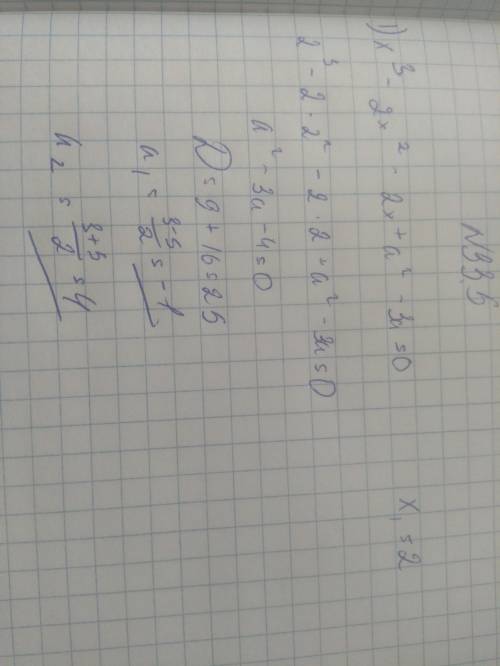 N33.5
1) x³ - 2x² - 2x + a² - 3a = 0 x₁ = 2
2³ - 2 · 2² - 2 · 2 + a² - 3a = 0
a² - 3a - 4 = 0
D = 9 + 16 = 25
a₁ = (3-5)/2 = -1
a₂ = (3+5)/2 = 4